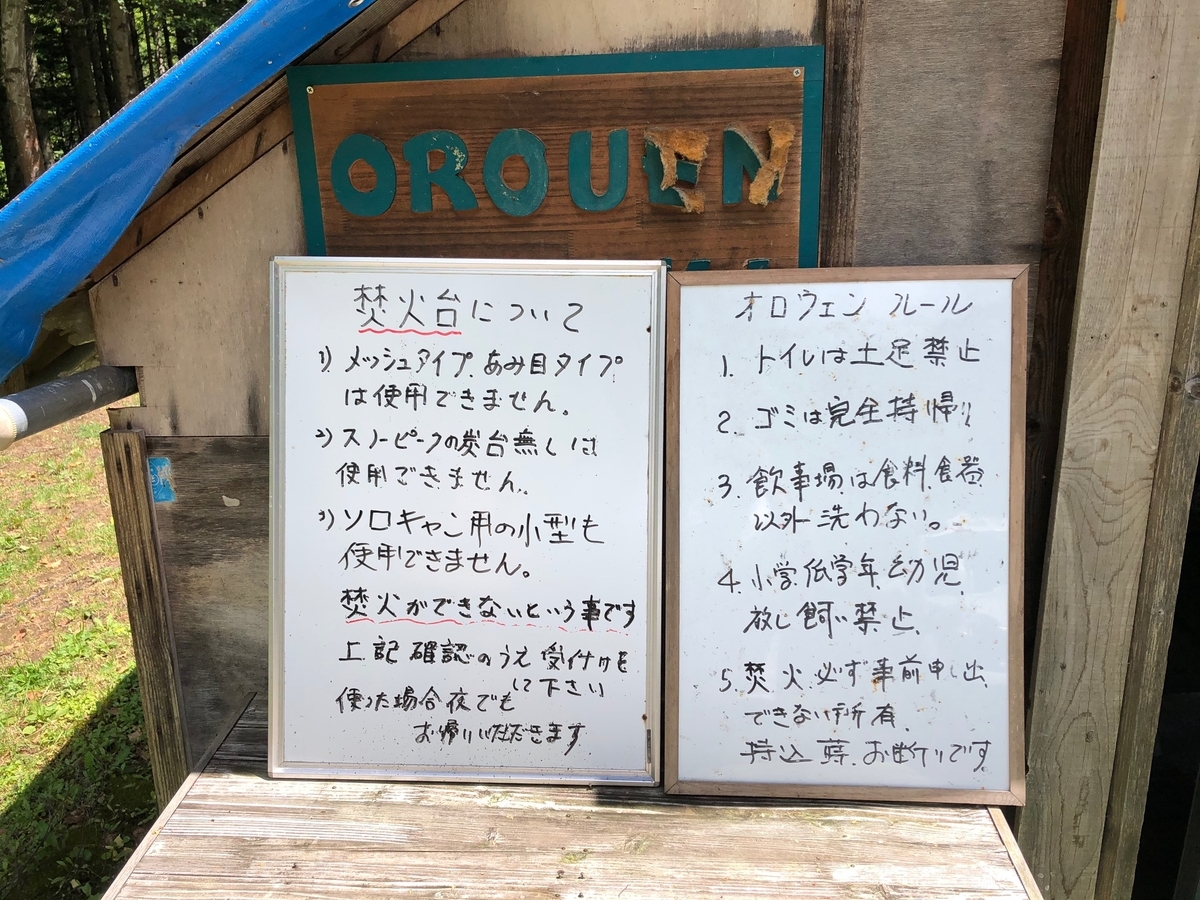 OROUEN
焚火台について
1) メッシュタイプ、あみ目タイプ
は使用できません。
2) スノーピークの炭台無しは
使用できません。
3) ソロキャン用の小型も
使用できません。
焚火ができないという事です
上記確認のうえ受付けを
して下さい
使った場合夜でも
お帰りいただきます
オロウェン ルール
1. トイレは土足禁止
2. ゴミは完全持帰り
3. 飲事場は食料、食器
以外洗わない。
4. 小学低学年幼児
放し飼い禁止、
5. 焚火必ず事前申し出、
できない所有、
持込 お断りです